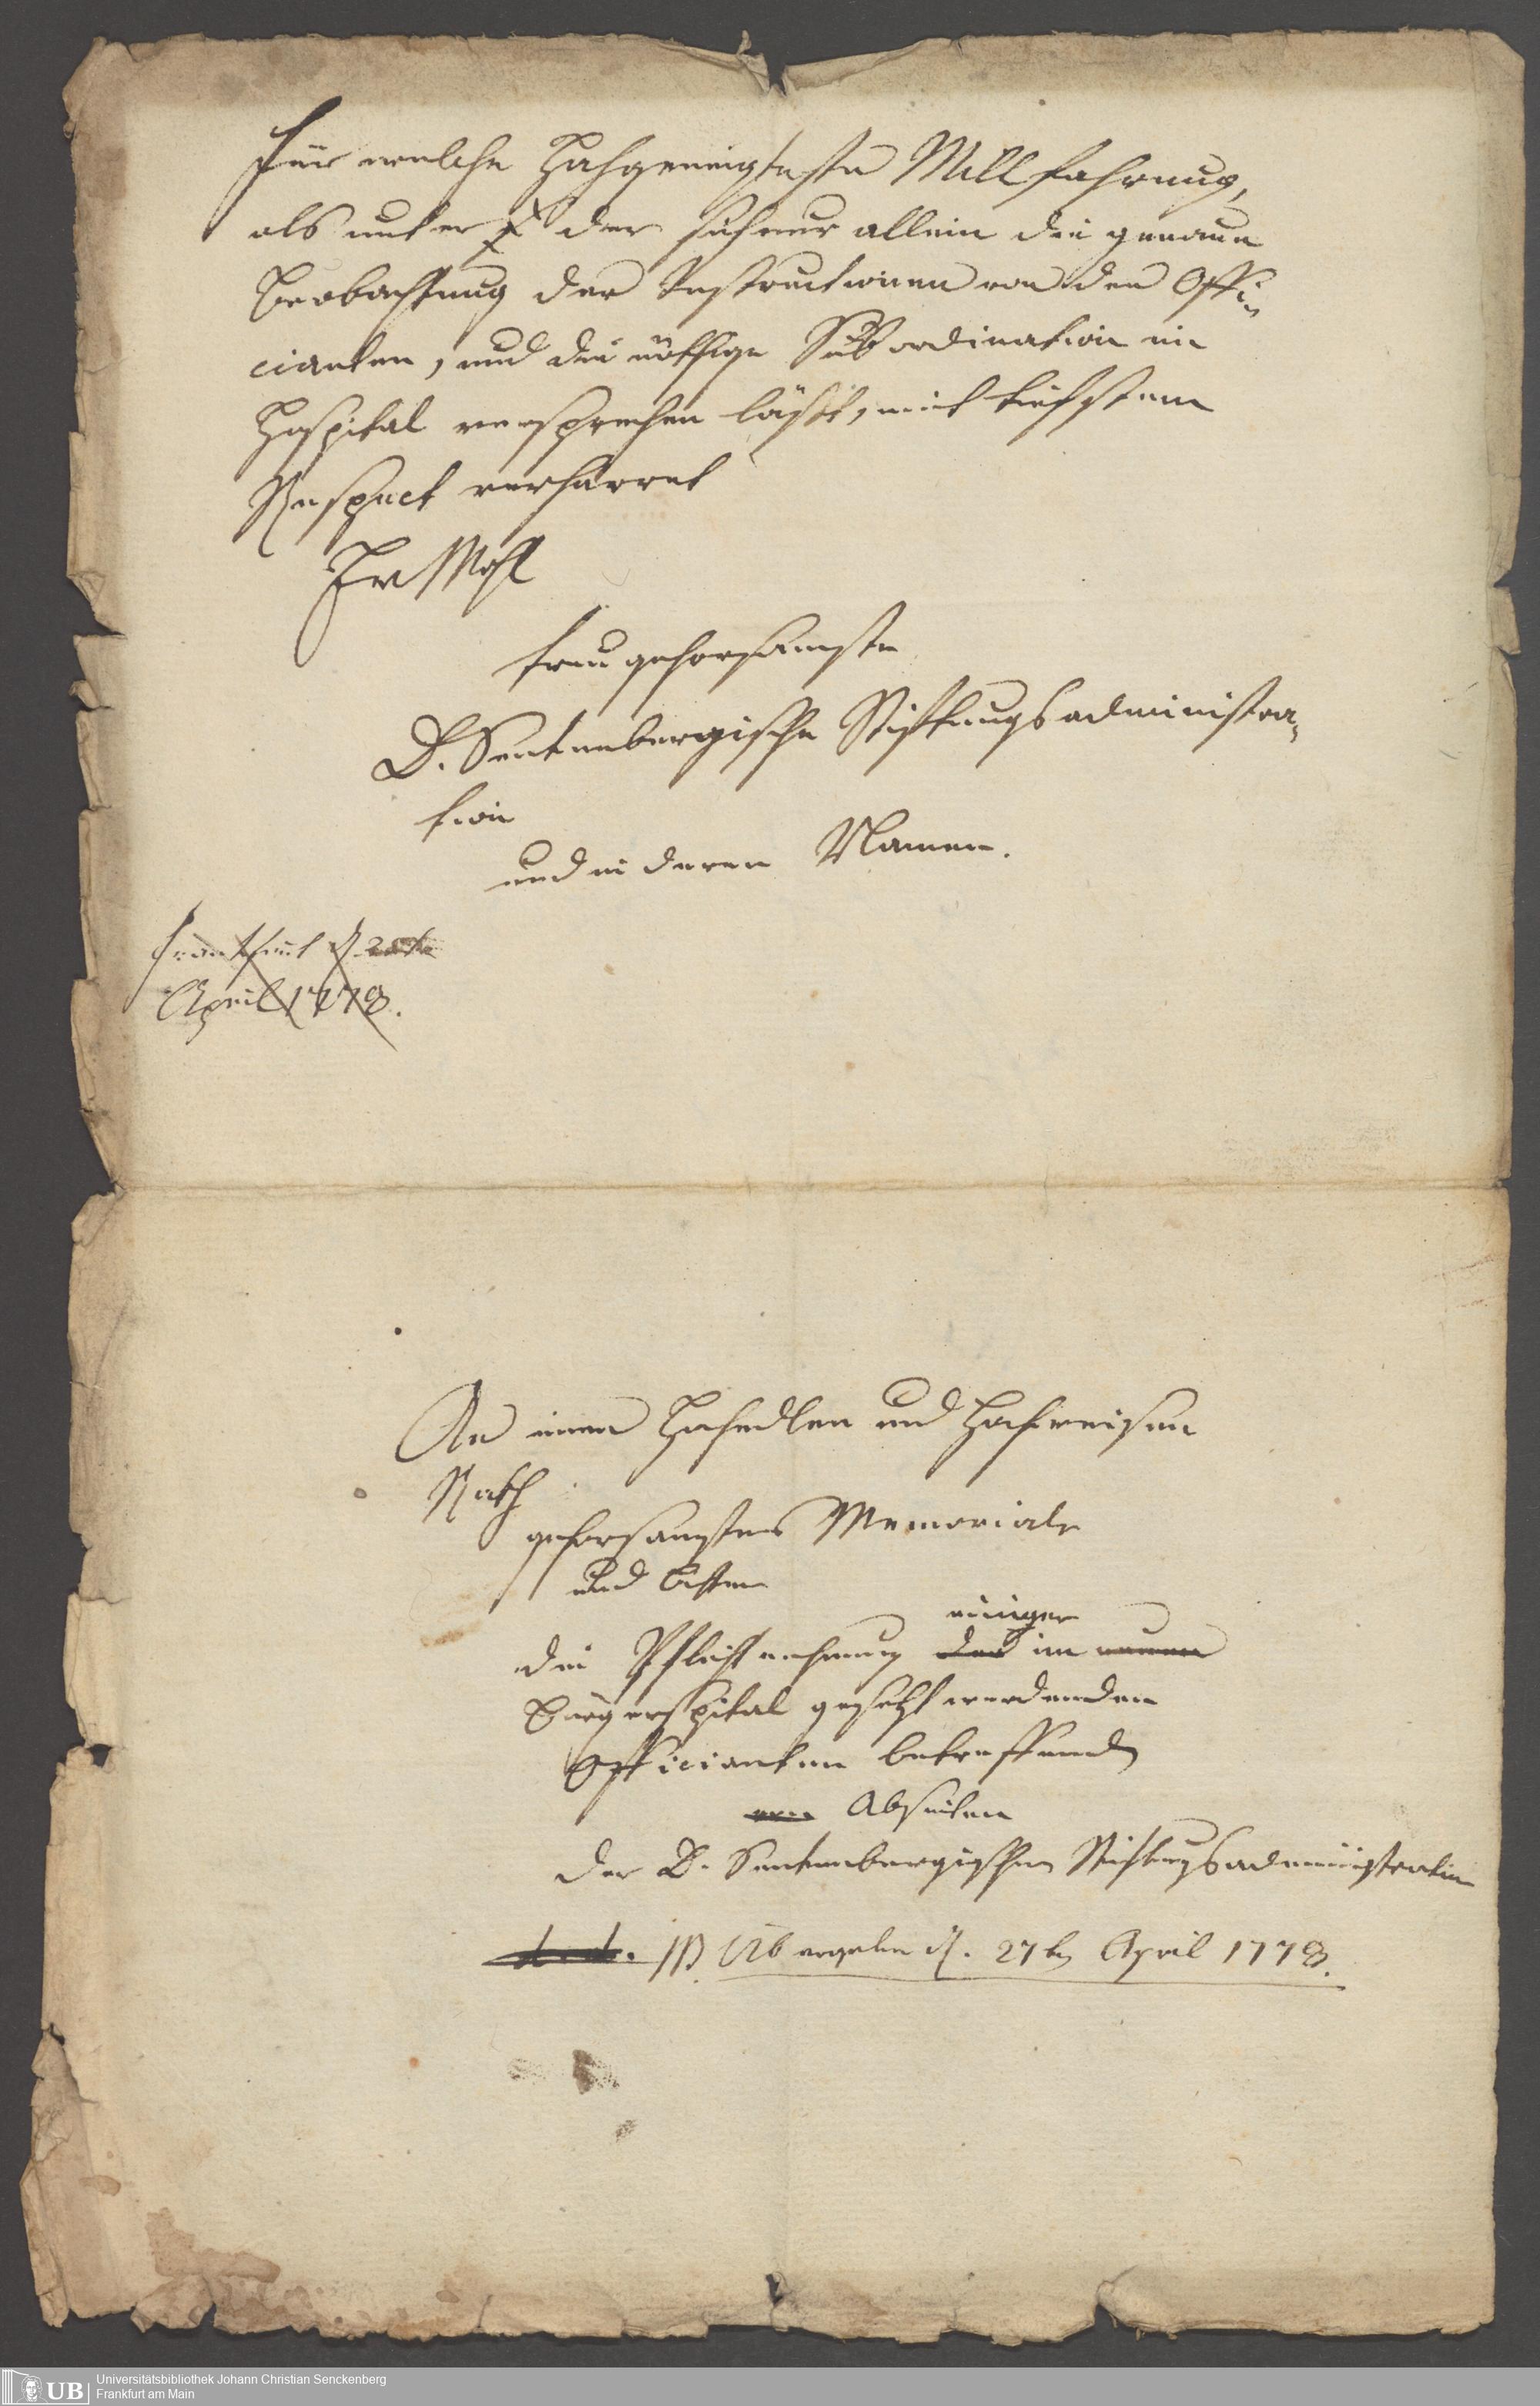 Für welche Hochgeneigteste Willfahrung,
als unter der sich nur allein die genaue
Beobachtung der Instructionen von den Offi-
cianten, und die nöthige Subordination im
Hospital versprechen läßt, mit tiefstem
Respect verharret
Ew Wohl
treu gehorsamste
D. Senkenbergische Stiftungsadministra-
tion
und in deren Namen.
Frankfurt d.
April 1778.
An einen Hochedlen und Hochweisen
Rath
gehorsamstes Memoriale
und Bitten
einiger
die Pflichtnehmung der im neuen
Bürgerspital gesetzt werdenden
Officianten betreffend
von Abseiten
der D. Senkenbergischen Stiftungsadministration
Übergeben d. 27ten April 1778.
Universitätsbibliothek Johann Christian Senckenberg
Frankfurt am Main
UB